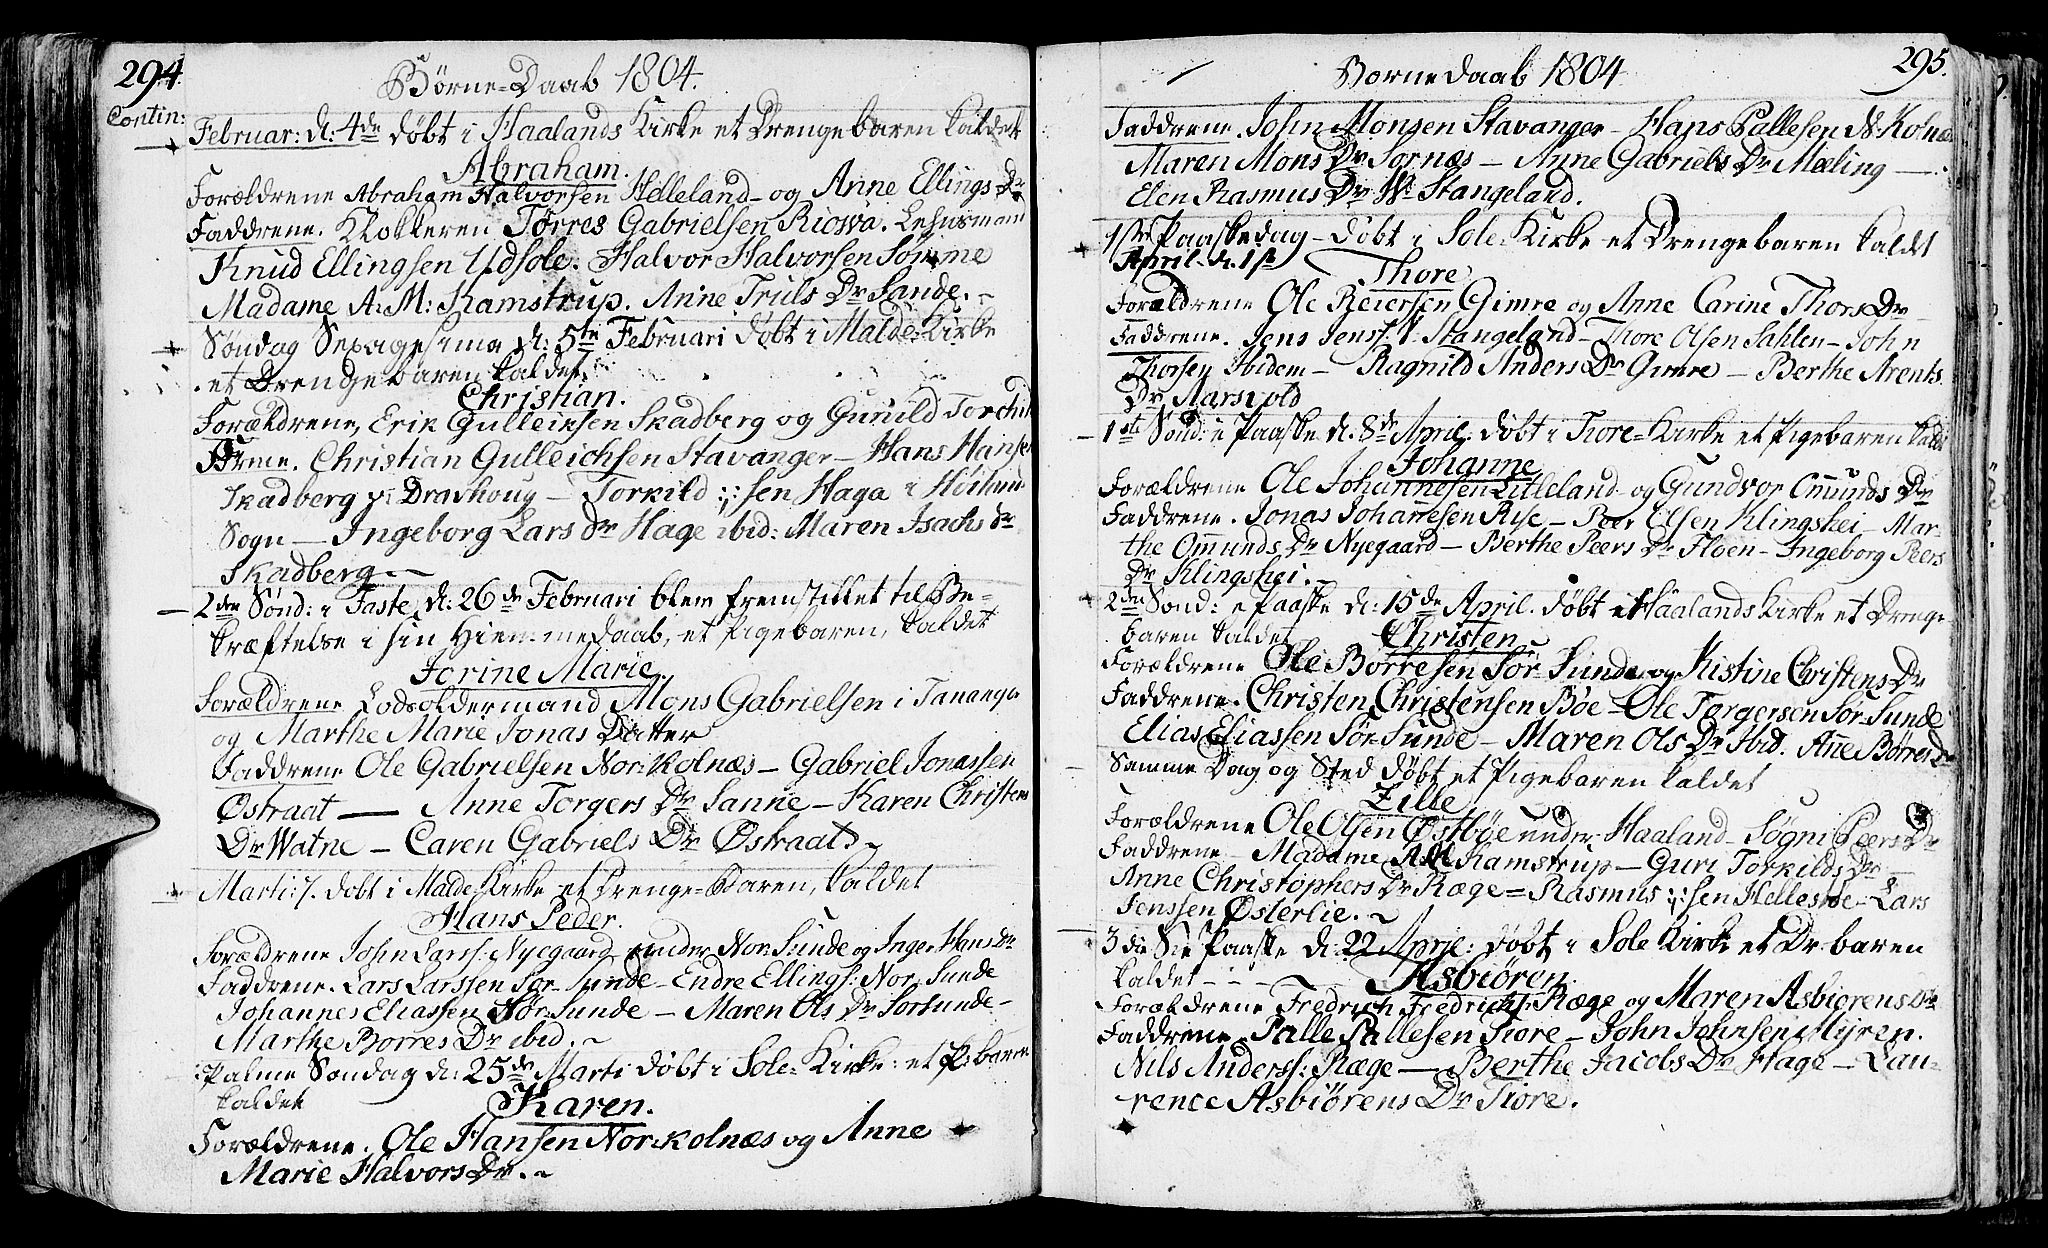 294.
Børne-Daab 1804.
Contin:
Februar: d: 4de døbt i Haalands Kirke et Drengebaren kaldet
Abraham.
Forældrene Abraham Halvorsen Helleland og Anne Ellings Dr
Faddrene. Klokkeren Tørres Gabrielsen Risvva. Lehnsmand
Knud Ellingsen Udsole. Halvor Halvorsen Sømme
Madame A: M: Kamstrup. Anne Truls Dr Sande. ~
Søndag Sexagesima d: 5te Februari døbt i Malde Kirke
et Drengebaren kaldet
Christian.
Forældrene, Erik Gulleiksen Skadberg og Gunild Torchils
Dr
Fadrene. Christian Gulleichsen Stavanger - Hans Hansen
Skadberg i Dravhoug - Torkild :/: sen Haga i Høiland
Sogn - Ingeborg Lars Dr Hage ibid: Maren Isachs Dr
Skadberg ~
2den Sønd: i Faste d: 26de Februari blev fremstillet til Be-
kræftelse i sin Hiemmedaab, et Pigebaren, kaldet
Jorine Marie
Forældrene Lodsoldermand Mons Gabrielsen i Tananger
og Marthe Marie Jonas Datter
Faddrene Ole Gabrielsen Nor:Kolnæs - Gabriel Jonassen
Østraat - Anne Torgers Dr Sanne - Karen Christens
Dr Watne - Caren Gabriels Dr Østraat ~
Marti: 7. døbt i Malde Kirke et Drenge-Baren, kaldet
Hans Peder.
Forældrene John Larss: Nyegaard under Nor: Sunde og Inger Hans Dr
Faddrene. Lars Larssen Sør Sunde - Endre Ellings: Nor: Sunde
Johannes Eliassen Sør Sunde - Maren Ols Dr Sørsunde -
Marthe Børres Dr ibid. ~
Palme Søndag d: 25de Marti døbt i Sole Kirke: et P: baren
kaldet
Karen.
Forældrene. Ole Hansen Nor:Kolnæs og Anne
Marie Halvors Dr. ~
295.
Børnedaab 1804
Faddrene. John Monsen Stavanger - Hans Pallesen N: Kolnæs
Maren Mons Dr Sørnæs - Anne Gabriels Dr Mæling -
Elen Rasmus Dr N: Stangeland.
1ste Paaskedag - døbt i Sole-Kirke et Drengebaren kaldt
April d. 1ste
Thore
Forældrene Ole Reiersen Gimre og Anne Carine Thors Dr
Faddrene. Jens Jenss: N: Stangeland - Thore Olsen Sahlen - John
Thorsen Ibidem - Ragnild Anders Dr Gimre - Berthe Arents
Dr Aarsvold
1ste Sønd: e Paaske d. 8de April: døbt i Tiore-Kirke et Pigebaren kaldt
Johanne
Forældrene Ole Johannesen Litleland og Gundvor Omunds Dr
Faddrene. Jonas Johannesen Rise - Peer Elsen Klingshei - Mar-
the Omunds Dr Nyegaard - Berthe Peers Dr Floen - Ingeborg Peers
Dr Klingshei. ~
2den Sønd: e Paaske d: 15de April. døbt i Haalands Kirke et Drenge
baren kaldet
Christen
Forældrene Ole Børresen Sør Sunde og Kistine Christens Dr
Faddrene. Christen Christensen Bøe - Ole Torgersen Sør Sunde
Elias Eliassen Sør Sunde - Maren Ols Dr Ibid. Anne Børres Dr
Samme Dag og Sted døbt et Pigebaren kaldet
Zille
Forældrene Ole Olsen Østbøe under Haaland - Søgni Peers Dr
Faddrene - Madame A M Kamstrup - Guri Torkilds Dr -
Anne Christophers Dr Ræge = Rasmus :/: sen Hellestøe - Lars
Jenssen Østerlie. ~
3die S: e Paaske d: 22 April: døbt i Sole Kirke et Dr: baren
kaldet - - -
Asbiøren
Forældrene Fredrich Fredrichs: Ræge og Maren Asbiørens Dr
Faddrene. Palle Pallesen Tiore - John Johnsen Myren.
Nils Anderss: Ræge - Berthe Jacobs Dr Hage - Lau-
rence Asbiørens Dr Tiore.